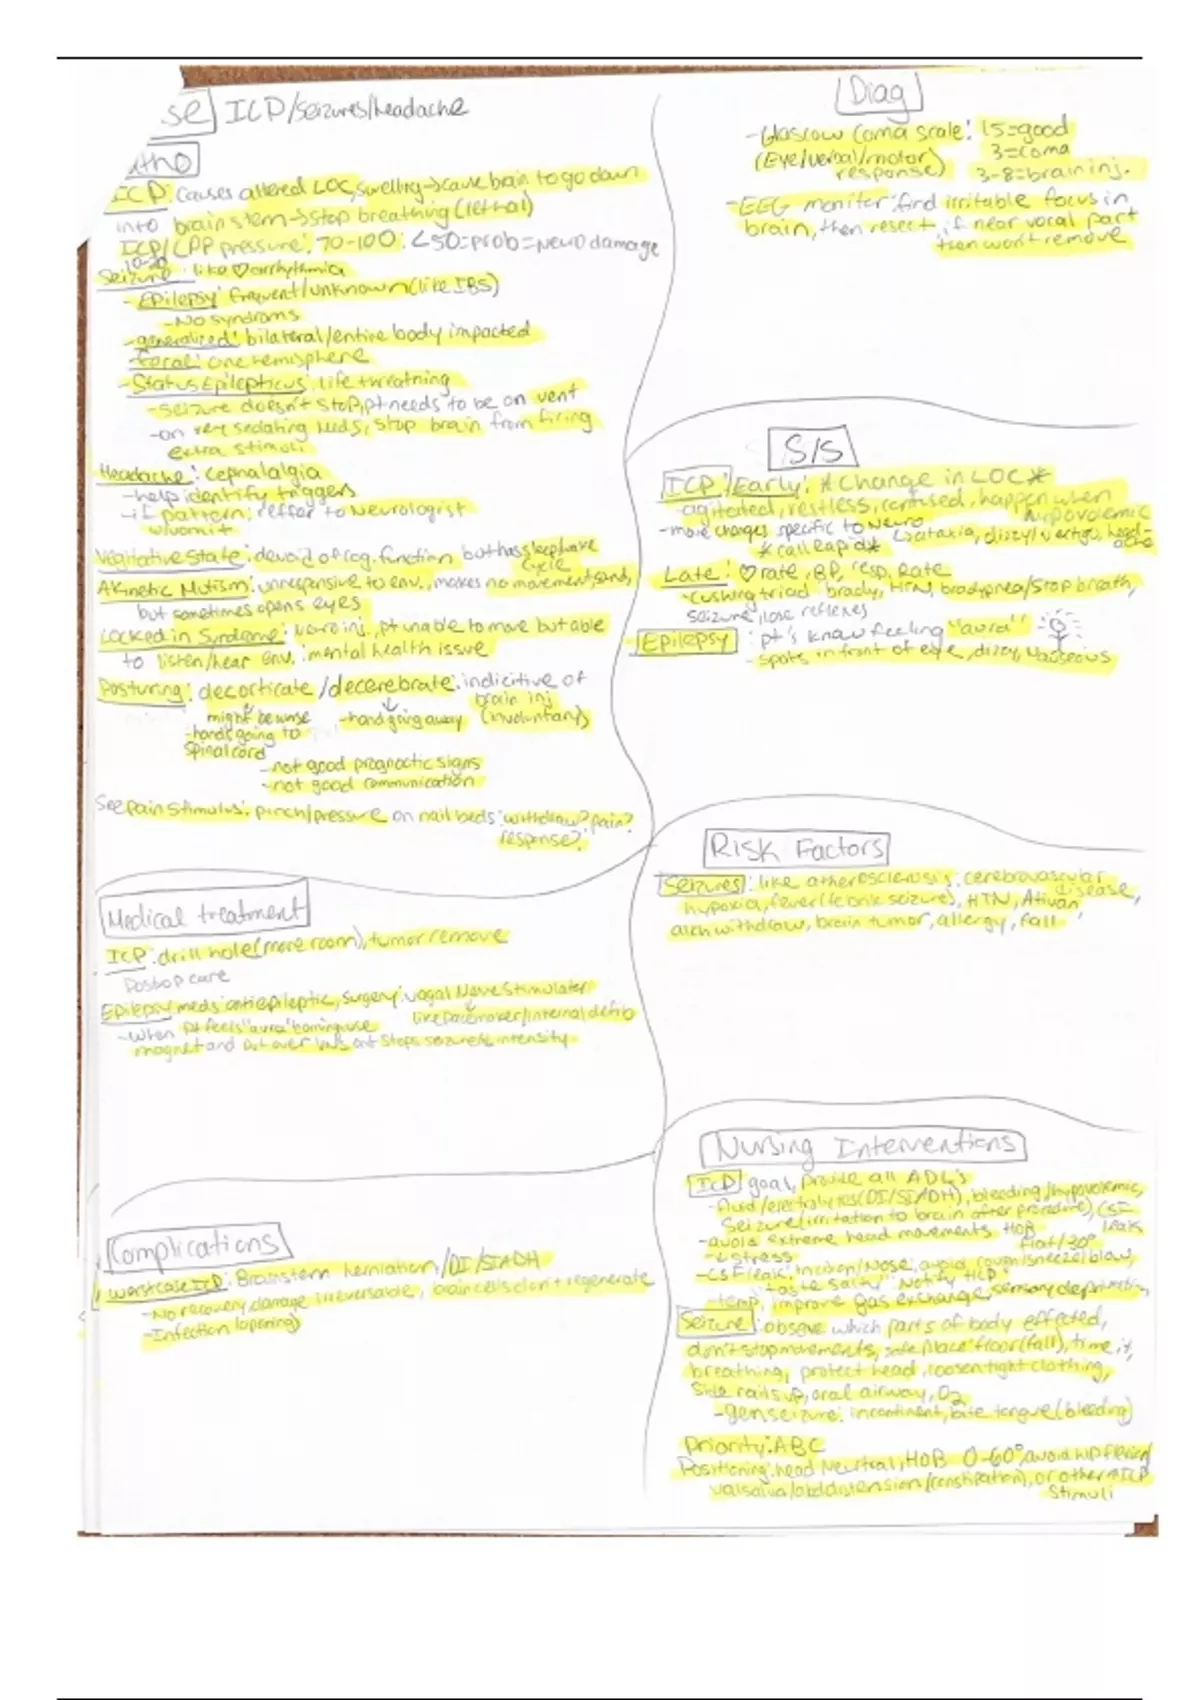 se ICP/seizures/headache
atho
ICP: causes altered LOC, swelling→cause brain to go down
into brain stem→stop breathing (lethal)
ICP/CPP pressure: 70-100: <50=prob=neuro damage
10-20
Seizure: like ♡ arrhythmia
- Epilepsy: frequent/unknown (like IBS)
- No syndroms
- generalized: bilateral/entire body impacted
- focal: one hemisphere
- Status Epilepticus: life threatning
- seizure doesn't stop, pt needs to be on vent
- on very sedating meds, stop brain from firing
extra stimuli
Headache: cephalalgia
- help identify triggers
- if pattern: reffer to Neurologist
w/vomit
Vegitative State: devoid of cog. function, but has sleep/wake
cycle
Akinetic Mutism: unresponsive to env., makes no movement, sounds,
but sometimes opens eyes
Locked in Syndrome: Neuro inj., pt unable to move but able
to listen/hear env.: mental health issue
Posturing: decorticate/decerebrate: indicitive of
brain inj
(involuntary)
might be worse - hand going away
- hands going to
spinal cord
- not good prognoctic signs
- not good communication
See pain stimulus: pinch/pressure on nail beds: withdraw? pain?
response?
Medical treatment
ICP: drill hole (more room), tumor remove
Postop care
Epilepsy meds: antiepileptic, surgery: vagal Nerve Stimulater
like pacemaker/internal defib
- when pt feels "aura" coming use
magnet and put over VNS, stops seizure/↓ intensity
Complications
worst case ICP: Brainstem herniation, /DI/SIADH
- No recovery, damage irreversable, brain cells don't regenerate
- Infection (opening)
Diag
- Glascow coma scale: 15=good
(Eye/verbal/motor 3=coma
response) 3-8=brain inj.
- EEG moniter: find irritable focus in
brain, then resect, if near vocal part
then won't remove
S/S
ICP: Early: *Change in LOC*
- agitated, restless, confused, happen when
hypovolemic
- more changes specific to Neuro
↳ ataxia, dizzy/vertigo, headache
*call Rapid*
Late: ♡rate, BP, resp. Rate
- cushing triad: brady, HTN, bradypnea/stop breath,
seizure, lose reflexes
Epilepsy: pt's know feeling "aura"
- spots in front of eye, dizzy, Nauseous
Risk Factors
Seizures: like atherosclerosis, cerebrovascular
disease,
hypoxia, fever (febrile seizure), HTN, Ativan
alch withdraw, brain tumor, allergy, fall
Nursing Interventions
ICP goal, Provide all ADL's
- fluid/electrolytes (DI/SIADH), bleeding/hypovolemic,
Seizure (irritation to brain after procedure), CSF
leak
- avoid extreme head movements HOB
flat/30°
- ↓ stress
- CSF leak: incision/Nose, avoid cough/sneeze/blow,
"taste salty" Notify HCP
- temp, improve gas exchange, sensory deprivation,
Seizure: observe which parts of body effected,
don't stop movements, safe place: floor (fall), time it,
breathing, protect head, loosen tight clothing,
Side rails up, oral airway, O2
- gen seizure: incontinent, bite tongue (bleeding)
Priority: ABC
Positioning: head Neutral, HOB 0-60°, avoid hip flexion/
valsalva/abd distension/(constipation), or other ↑ICP
stimuli